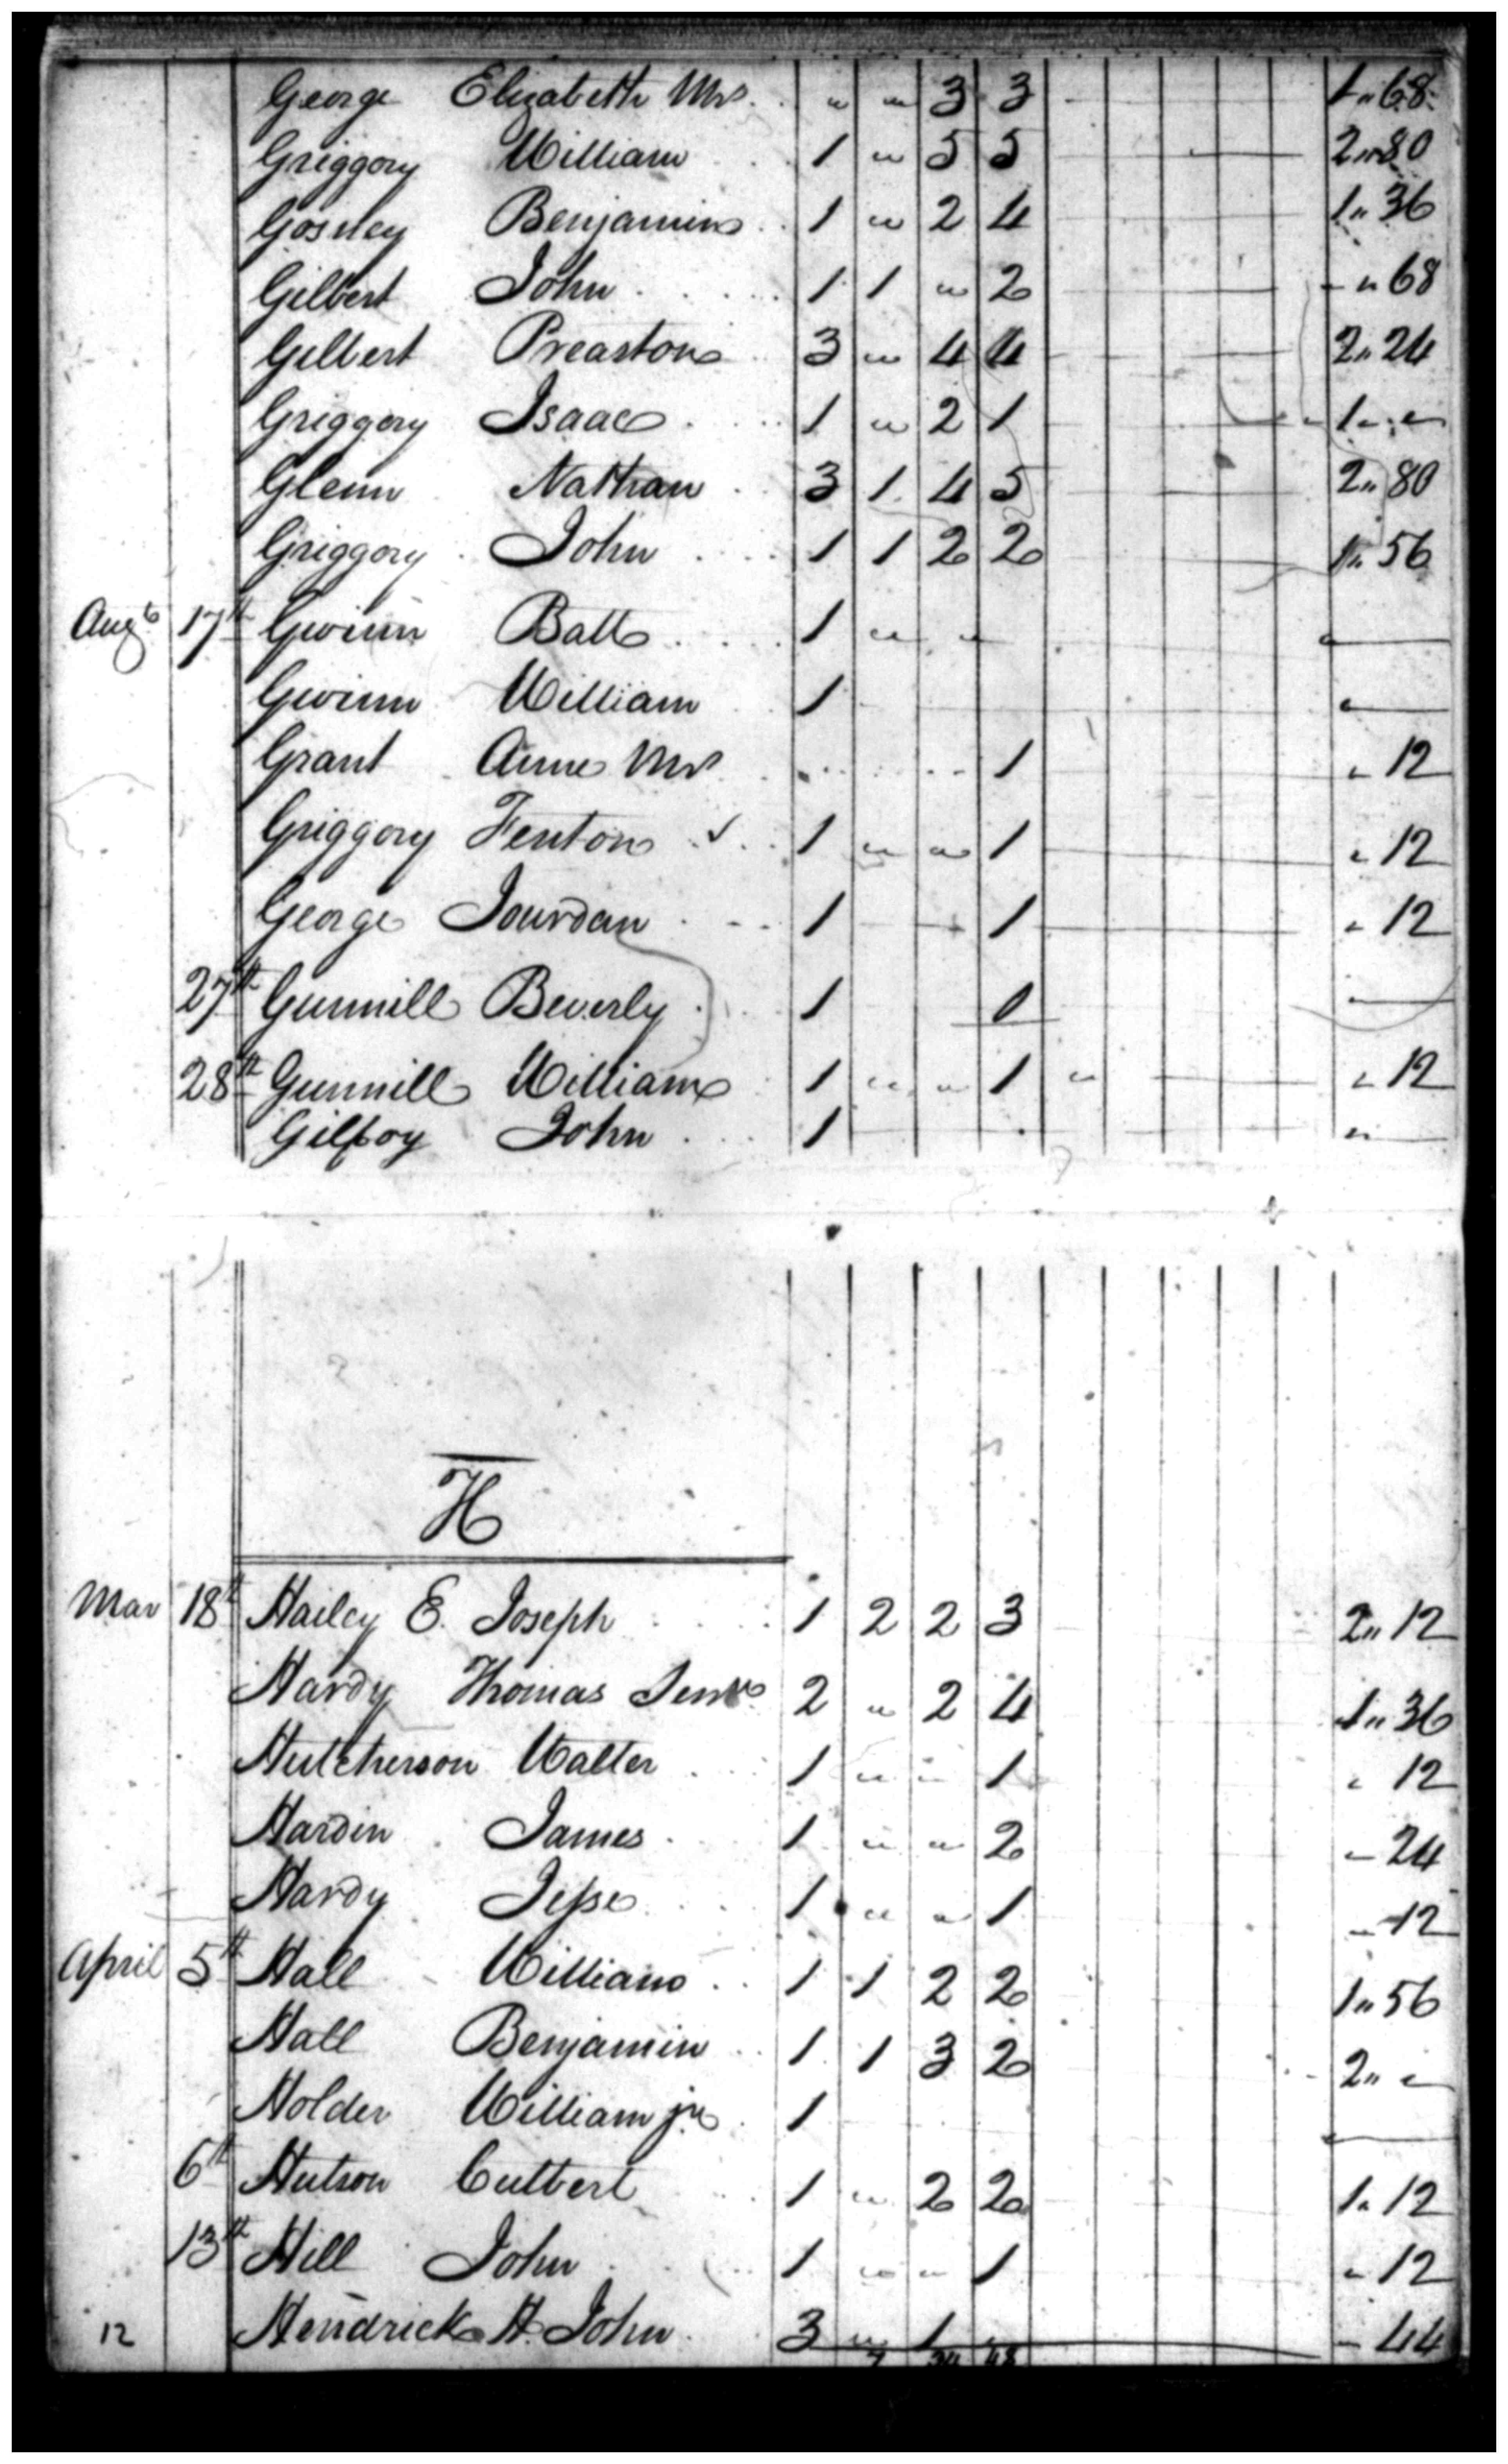 George Elizabeth Mrs. " " 3 3 1"68
Griggory William 1 " 5 5 2"80
Gosney Benjamin 1 " 2 4 1"36
Gilbert John 1 1 " 2 - "68
Gilbert Preaston 3 " 4 4 2"24
Griggory Isaac 1 " 2 1 1" "
Glenn Nathan 3 1 4 5 2"80
Griggory John 1 1 2 2 1"56
Augt 17th Gwinn Ball 1 " "
Gwinn William 1
Grant Anne Mrs 1 " 12
Griggory Fenton ✓ 1 " " 1 " 12
George Jourdan 1 1 " 12
27th Gunnill Beverly 1 0
28th Gunnill William 1 " " 1 " " 12
Gilboy John 1 "
H
Mar 18th Hailey E. Joseph 1 2 2 3 2"12
Hardy Thomas Senr 2 " 2 4 1"36
Hutcherson Walter 1 " " 1 " 12
Hardin James 1 " " 2 " 24
Hardy Jesse 1 " " 1 " 12
April 5th Hall William 1 1 2 2 1"56
Hall Benjamin 1 1 3 2 2" "
Holder William jr 1
6th Hutson Cutbert 1 " 2 2 1"12
13th Hill John 1 " " 1 " 12
12 Hendrick H. John 3 " 1 - 44
7 34 48